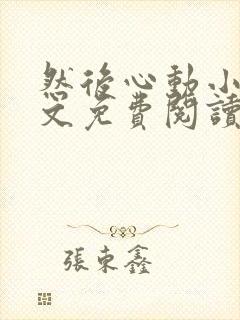 然後心動小
文免費閱讀
張東鑫